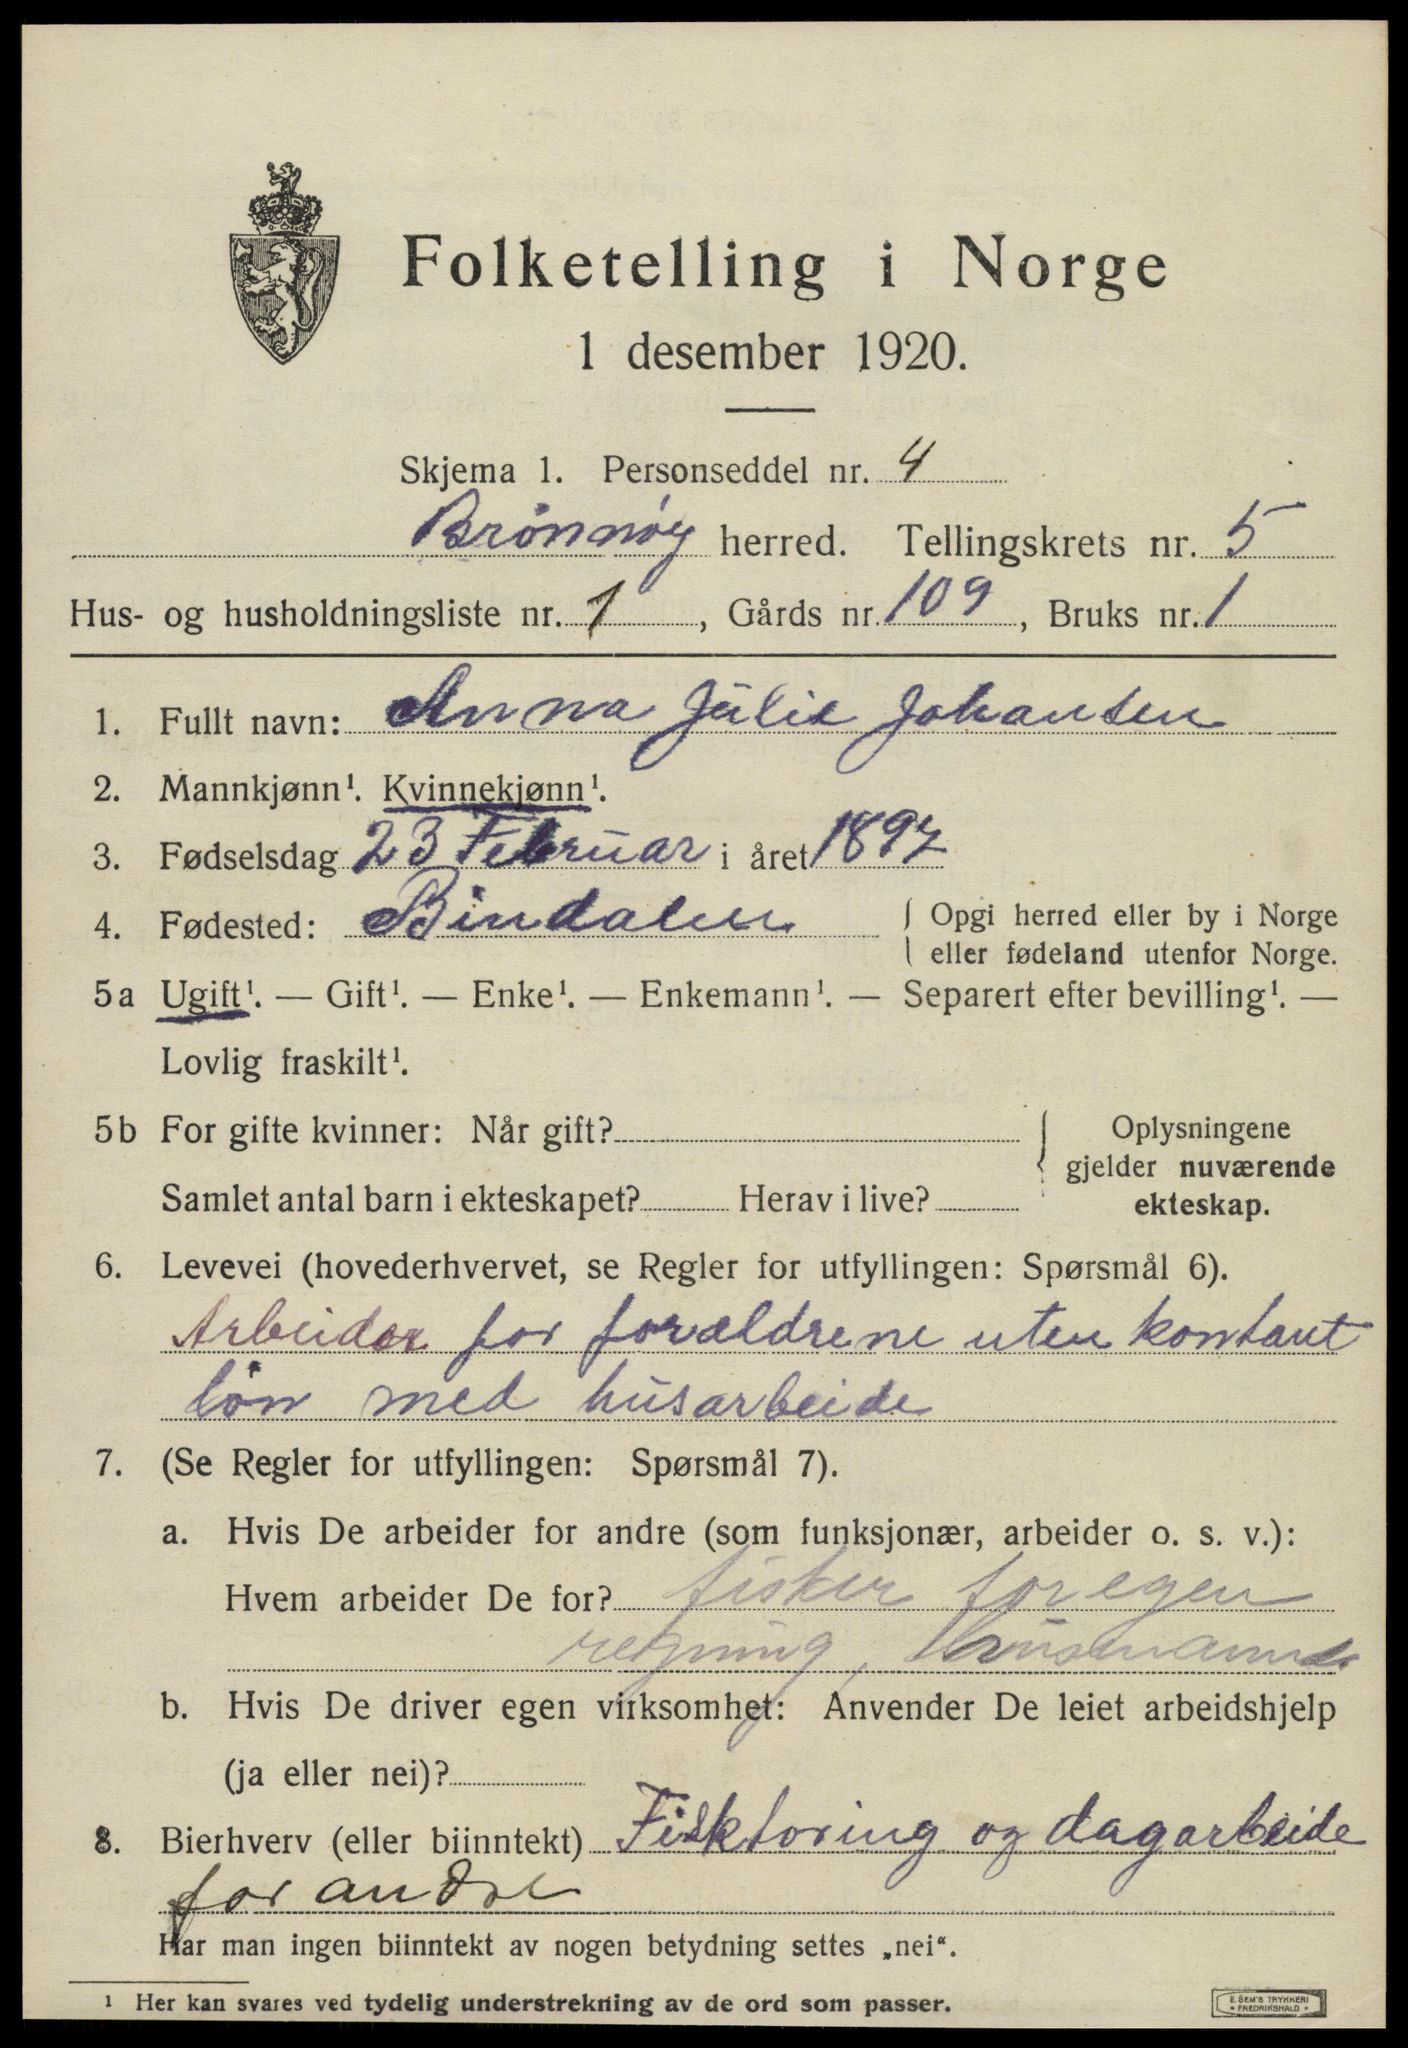 Folketelling i Norge
1 desember 1920.
Skjema 1. Personseddel nr. 4
Brönnöy herred. Tellingskrets nr. 5
Hus- og husholdningsliste nr. 1, Gårds nr. 109, Bruks nr. 1
1. Fullt navn: Anna Julie Johansen
2. Mannkjønn¹. Kvinnekjønn¹.
3. Fødselsdag 23 Februar i året 1897
4. Fødested: Bindalen { Opgi herred eller by i Norge
eller fødeland utenfor Norge.
5a Ugift¹. — Gift¹. — Enke¹. — Enkemann¹. — Separert efter bevilling¹. —
Lovlig fraskilt¹.
5b For gifte kvinner: Når gift? } Oplysningene
gjelder nuværende
Samlet antal barn i ekteskapet? Herav i live? ekteskap.
6. Levevei (hovederhvervet, se Regler for utfyllingen: Spørsmål 6).
Arbeider for forældrene uten kontant
lön med husarbeide
7. (Se Regler for utfyllingen: Spørsmål 7).
a. Hvis De arbeider for andre (som funksjonær, arbeider o. s. v.):
Hvem arbeider De for? fisker for egen
regning,
b. Hvis De driver egen virksomhet: Anvender De leiet arbeidshjelp
(ja eller nei)?
8. Bierhverv (eller biinntekt) Fisktoring og dagarbeide
for andre
Har man ingen biinntekt av nogen betydning settes „nei“.
¹ Her kan svares ved tydelig understrekning av de ord som passer.
E. SEM'S TRYKKERI
• FREDRIKSHALD •